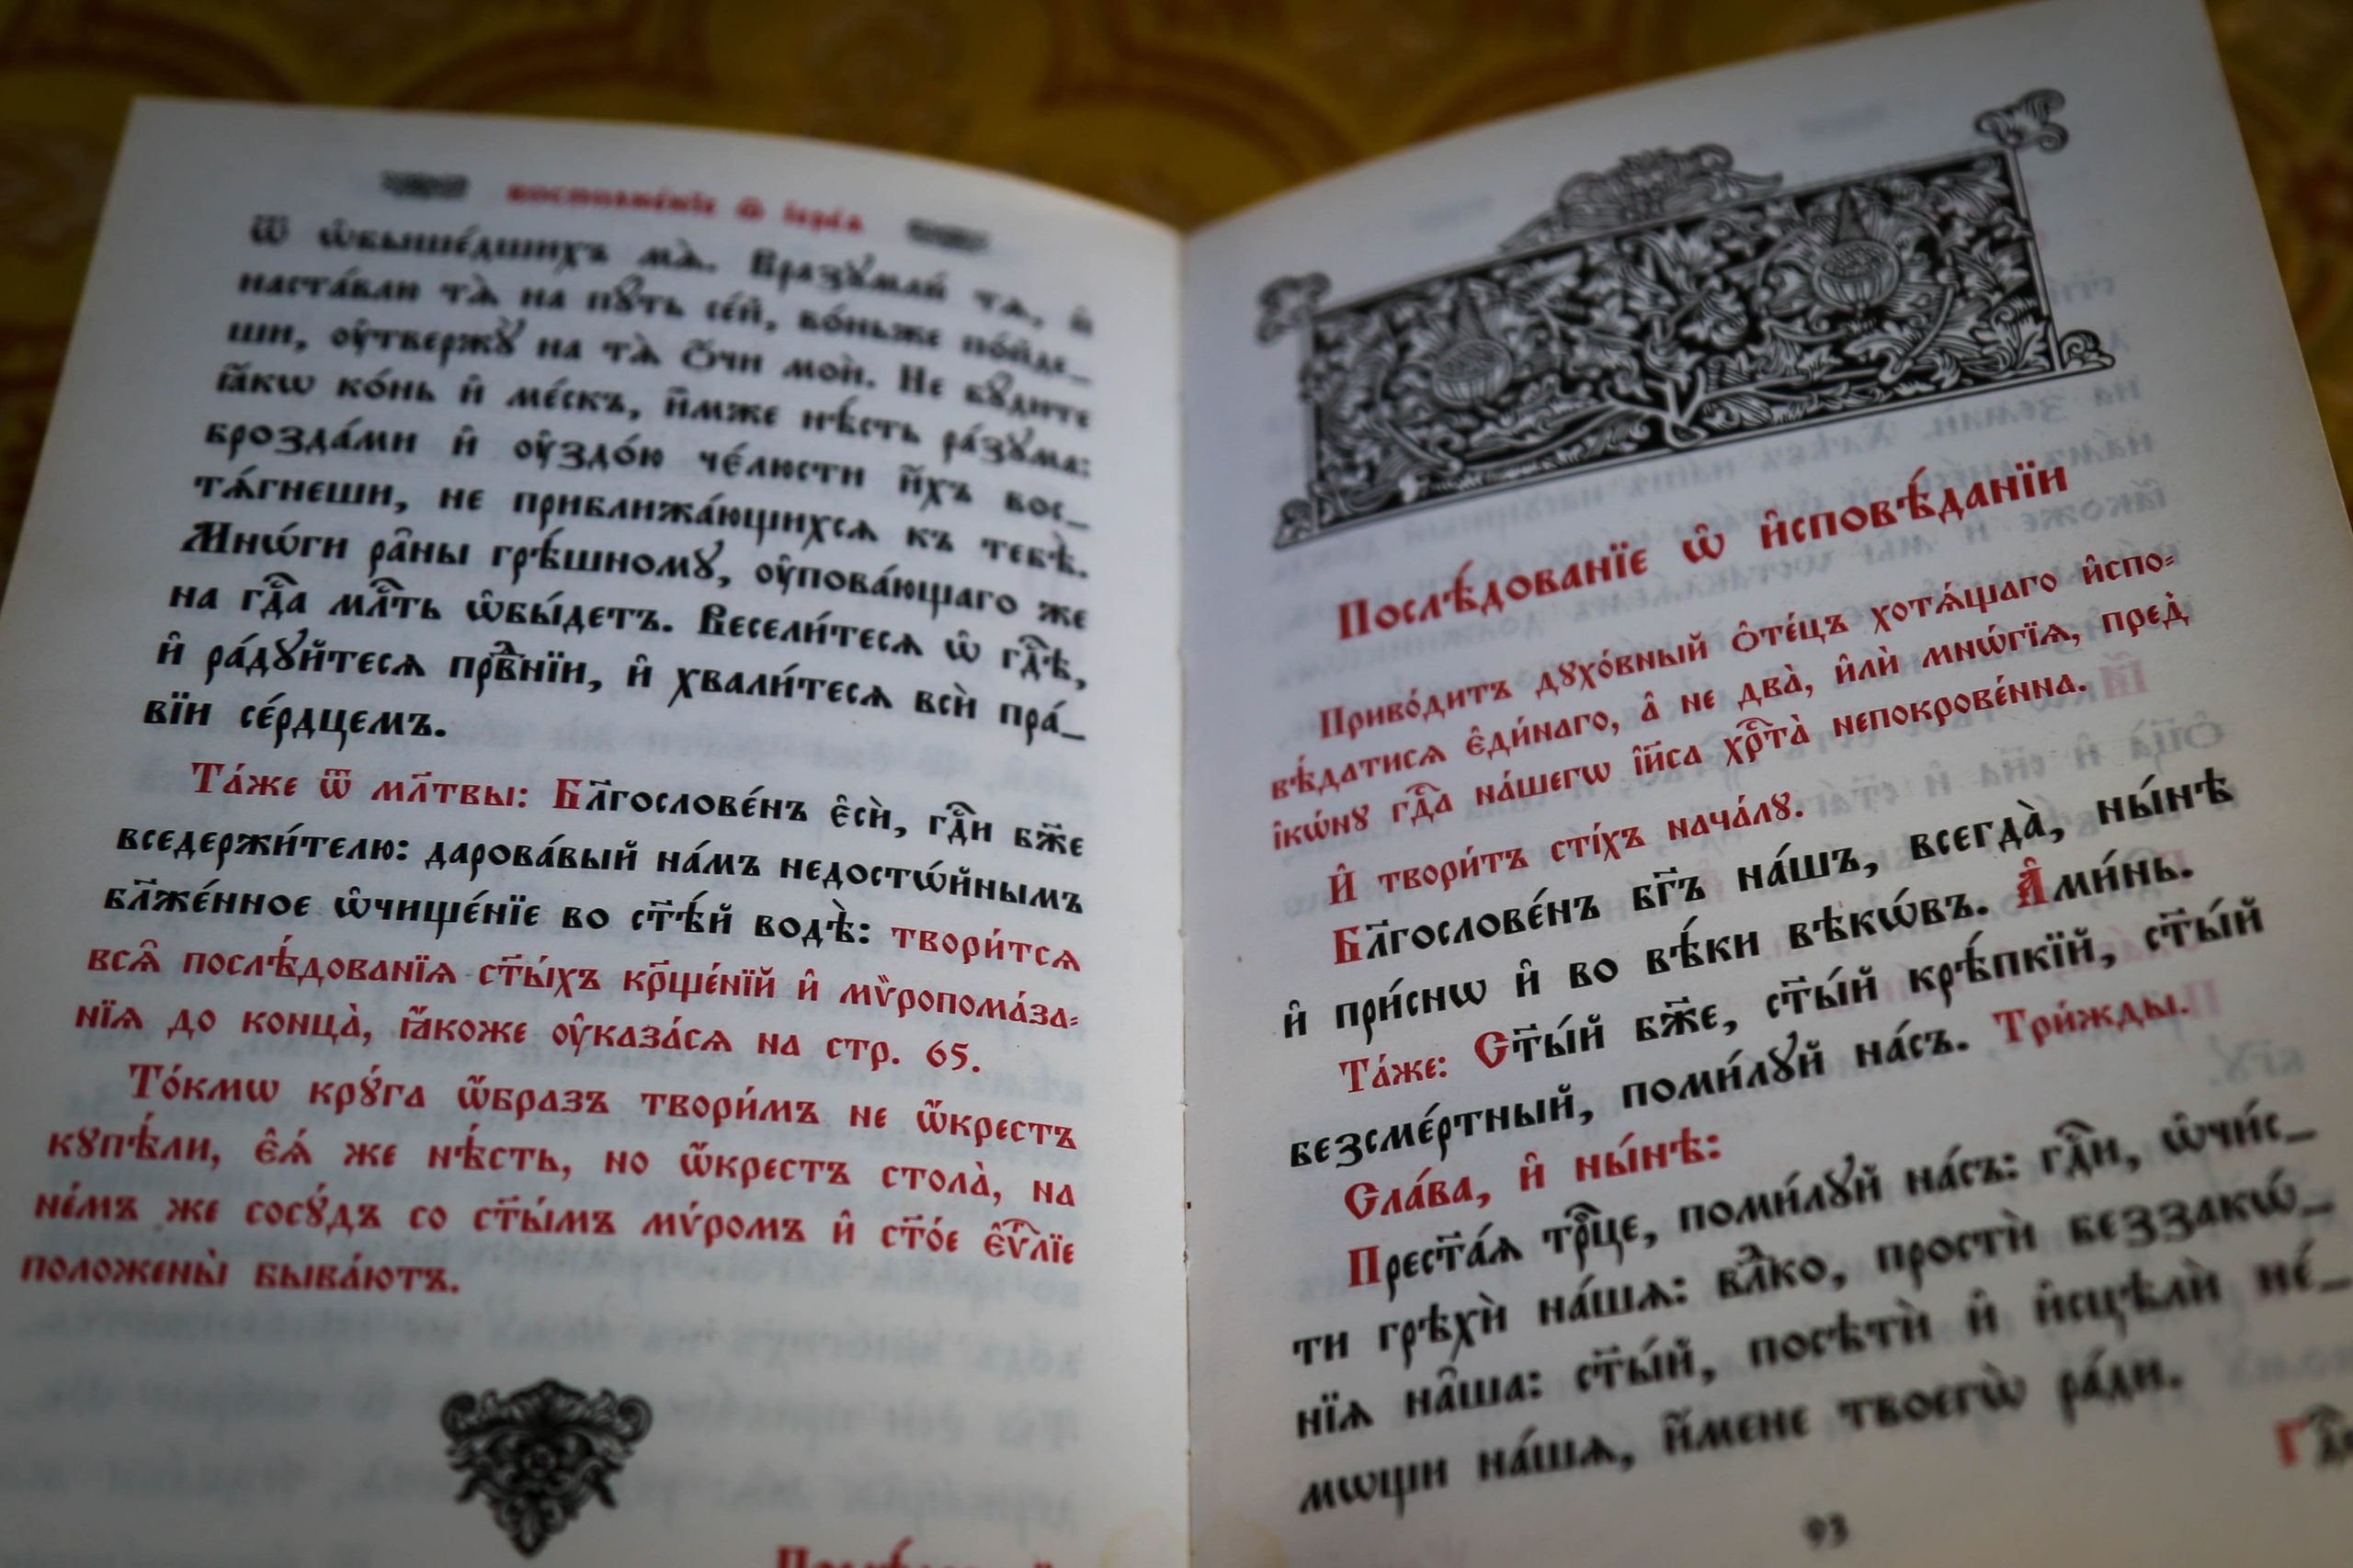 восполне́нїе ѿ і҆ере́а
ѿ ѡ҆бы́шедшихъ мѧ̀. Вразꙋмлю́ тѧ, и҆
наста́влю тѧ̀ на пꙋ́ть се́й, во́ньже по́йде_
ши, ᲂу҆твержꙋ̀ на тѧ̀ ѻ҆́чи моѝ. Не бꙋ́дите
ꙗ҆́кѡ ко́нь и҆ ме́скъ, и҆̀мже нѣ́сть ра́зꙋма:
брозда́ми и҆ ᲂу҆здо́ю че́люсти и҆́хъ вос_
тѧ́гнеши, не приближа́ющихсѧ къ тебѣ̀.
Мнѡ́ги ра̑ны грѣ́шномꙋ, ᲂу҆пова́ющаго же
на гдⷭ҇а млⷭ҇ть ѡ҆бы́детъ. Весели́тесѧ ѡ҆ гдⷭ҇ѣ,
и҆ ра́дꙋйтесѧ првⷣнїи, и҆ хвали́тесѧ всѝ пра́_
вїи се́рдцемъ.
Та́же ѿ мл҃твы: Бл҃гослове́нъ є҆сѝ, гдⷭ҇и бж҃е
вседержи́телю: дарова́вый на́мъ недостѡ́йнымъ
бл҃же́нное ѡ҆чище́нїе во ст҃ѣ́й водѣ̀: твори́тсѧ
всѧ̑ послѣ́дованїѧ ст҃ы́хъ кр҃ще́нїй и҆ мѷропома́за-
нїѧ до конца̀, ꙗ҆́коже ᲂу҆каза́сѧ на стр. 65.
То́кмѡ крꙋ́га ѡ҆́бразъ твори́мъ не ѡ҆́крестъ
кꙋпѣ́ли, є҆ѧ́ же нѣ́сть, но ѡ҆́крестъ стола̀, на
не́мъ же сосꙋ́дъ со ст҃ы́мъ мѵ́ромъ и҆ ст҃о́е є҆ѵⷢ҇лїе
положены̀ быва́ютъ.
Послѣ́дованїе ѡ҆ и҆сповѣ́данїи
Приво́дитъ дꙋхо́вный ѻ҆те́цъ хотѧ́щаго и҆спо-
вѣ́датисѧ є҆ди́наго, а҆ не два̀, и҆лѝ мнѡ́гїѧ, пред̾
і҆кѡ́нꙋ гдⷭ҇а на́шегѡ і҆и҃са хрⷭ҇та̀ непокрове́нна.
И҆ твори́тъ сті́хъ нача́лꙋ.
Бл҃гослове́нъ бг҃ъ на́шъ, всегда̀, ны́нѣ
и҆ при́снѡ и҆ во вѣ́ки вѣкѡ́въ. А҆ми́нь.
Та́же: Ст҃ы́й бж҃е, ст҃ы́й крѣ́пкїй, ст҃ы́й
безсме́ртный, поми́лꙋй на́съ. Три́жды.
Сла́ва, и҆ ны́нѣ:
Прест҃а́ѧ трⷪ҇це, поми́лꙋй на́съ: гдⷭ҇и, ѡ҆чи́с_
ти грѣхѝ на́шѧ: влⷣко, простѝ беззакѡ́_
нїѧ на̑ша: ст҃ы́й, посѣтѝ и҆ и҆сцѣлѝ не́_
мѡщи на́шѧ, и҆́мене твоегѡ̀ ра́ди.
93